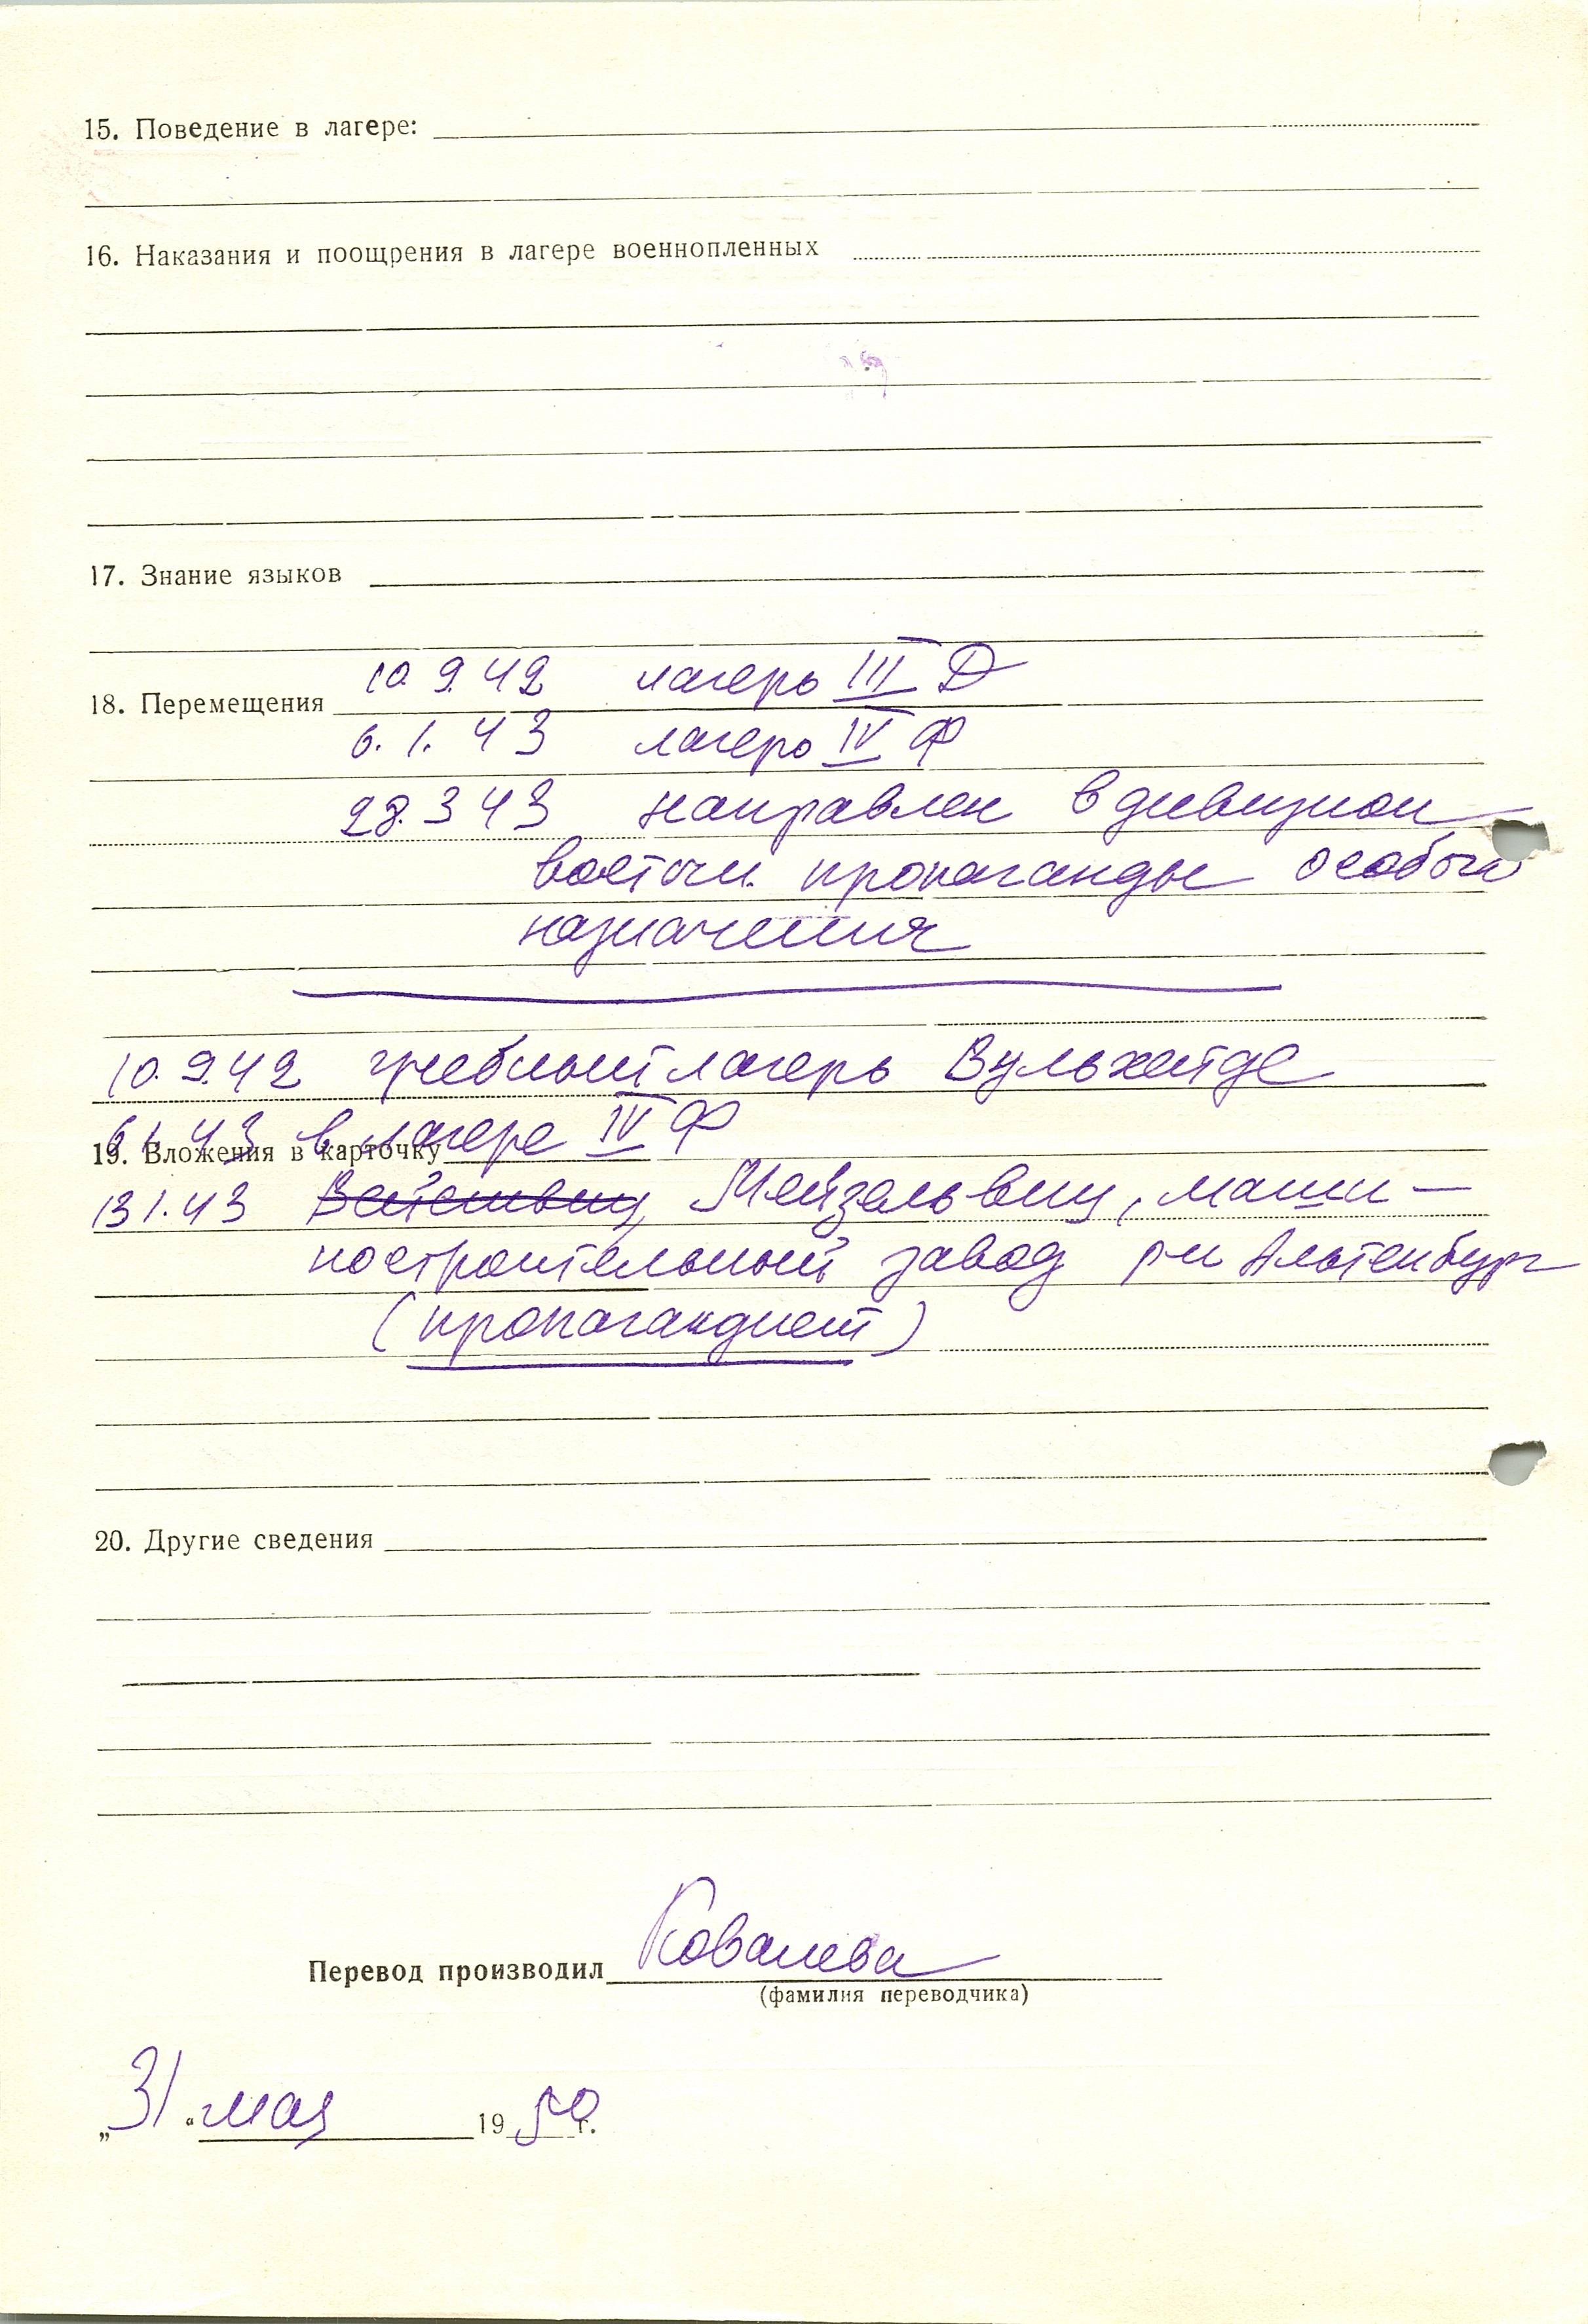 15. Поведение в лагере:
16. Наказания и поощрения в лагере военнопленных
17. Знание языков
10. 9. 42 лагерь III Д
18. Перемещения
6. 1. 43 лагерь IV Ф
28. 3 43 направлен в дивизион
восточн. пропаганды особого
назначения
10. 9. 42 учебный лагерь Вульхейде
6. 1. 43 в лагере IV Ф
19. Вложения в карточку
13 1. 43 Мейзельвиц, маши-
ностроительный завод рн Альтенбург
(пропагандист)
20. Другие сведения
Перевод производил Ковалева
(фамилия переводчика)
„31“ мая 1950 г.